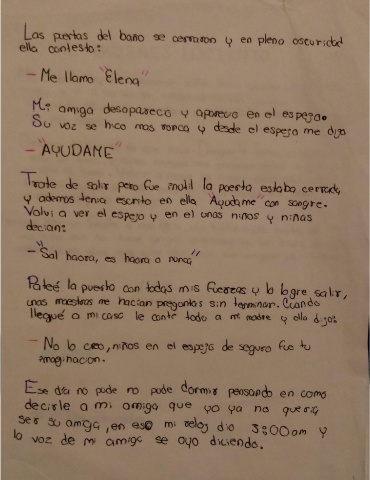 Las puertas del baño se cerraron y en plena oscuridad
ella contesto:
- Me llamo "Elena"
Mi amiga desaparecio y aparecio en el espejo.
Su voz se hico mas ronca y desde el espejo me dijo
- "AYUDAME"
Trate de salir pero fue inutil la puerta estaba cerrada,
y ademas tenia escrito en ella "Ayudame" con sangre.
Volvi a ver el espejo y en el unos niños y niñas
decian:
- "Sal haora, es haora o nunca"
Pateé la puerta con todas mis fuerzas y la logre salir,
unas maestras me hacian preguntas sin terminar. Cuando
llegué a mi casa le conte todo a mi madre y ella dijo:
- No lo creo, niños en el espejo de seguro fue tu
imaginacion.
Ese dia no pude no pude dormir pensando en como
decirle a mi amiga que yo ya no queria
ser su amiga, en eso mi reloj dio 3:00am y
la voz de mi amiga se oyo diciendo.